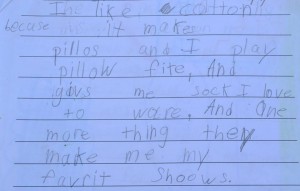 I like cotton
becase it make
pillos and I play
pillow fite, And
givs me sock I love
to ware, And One
more thing they
make me my
favrit shoows.